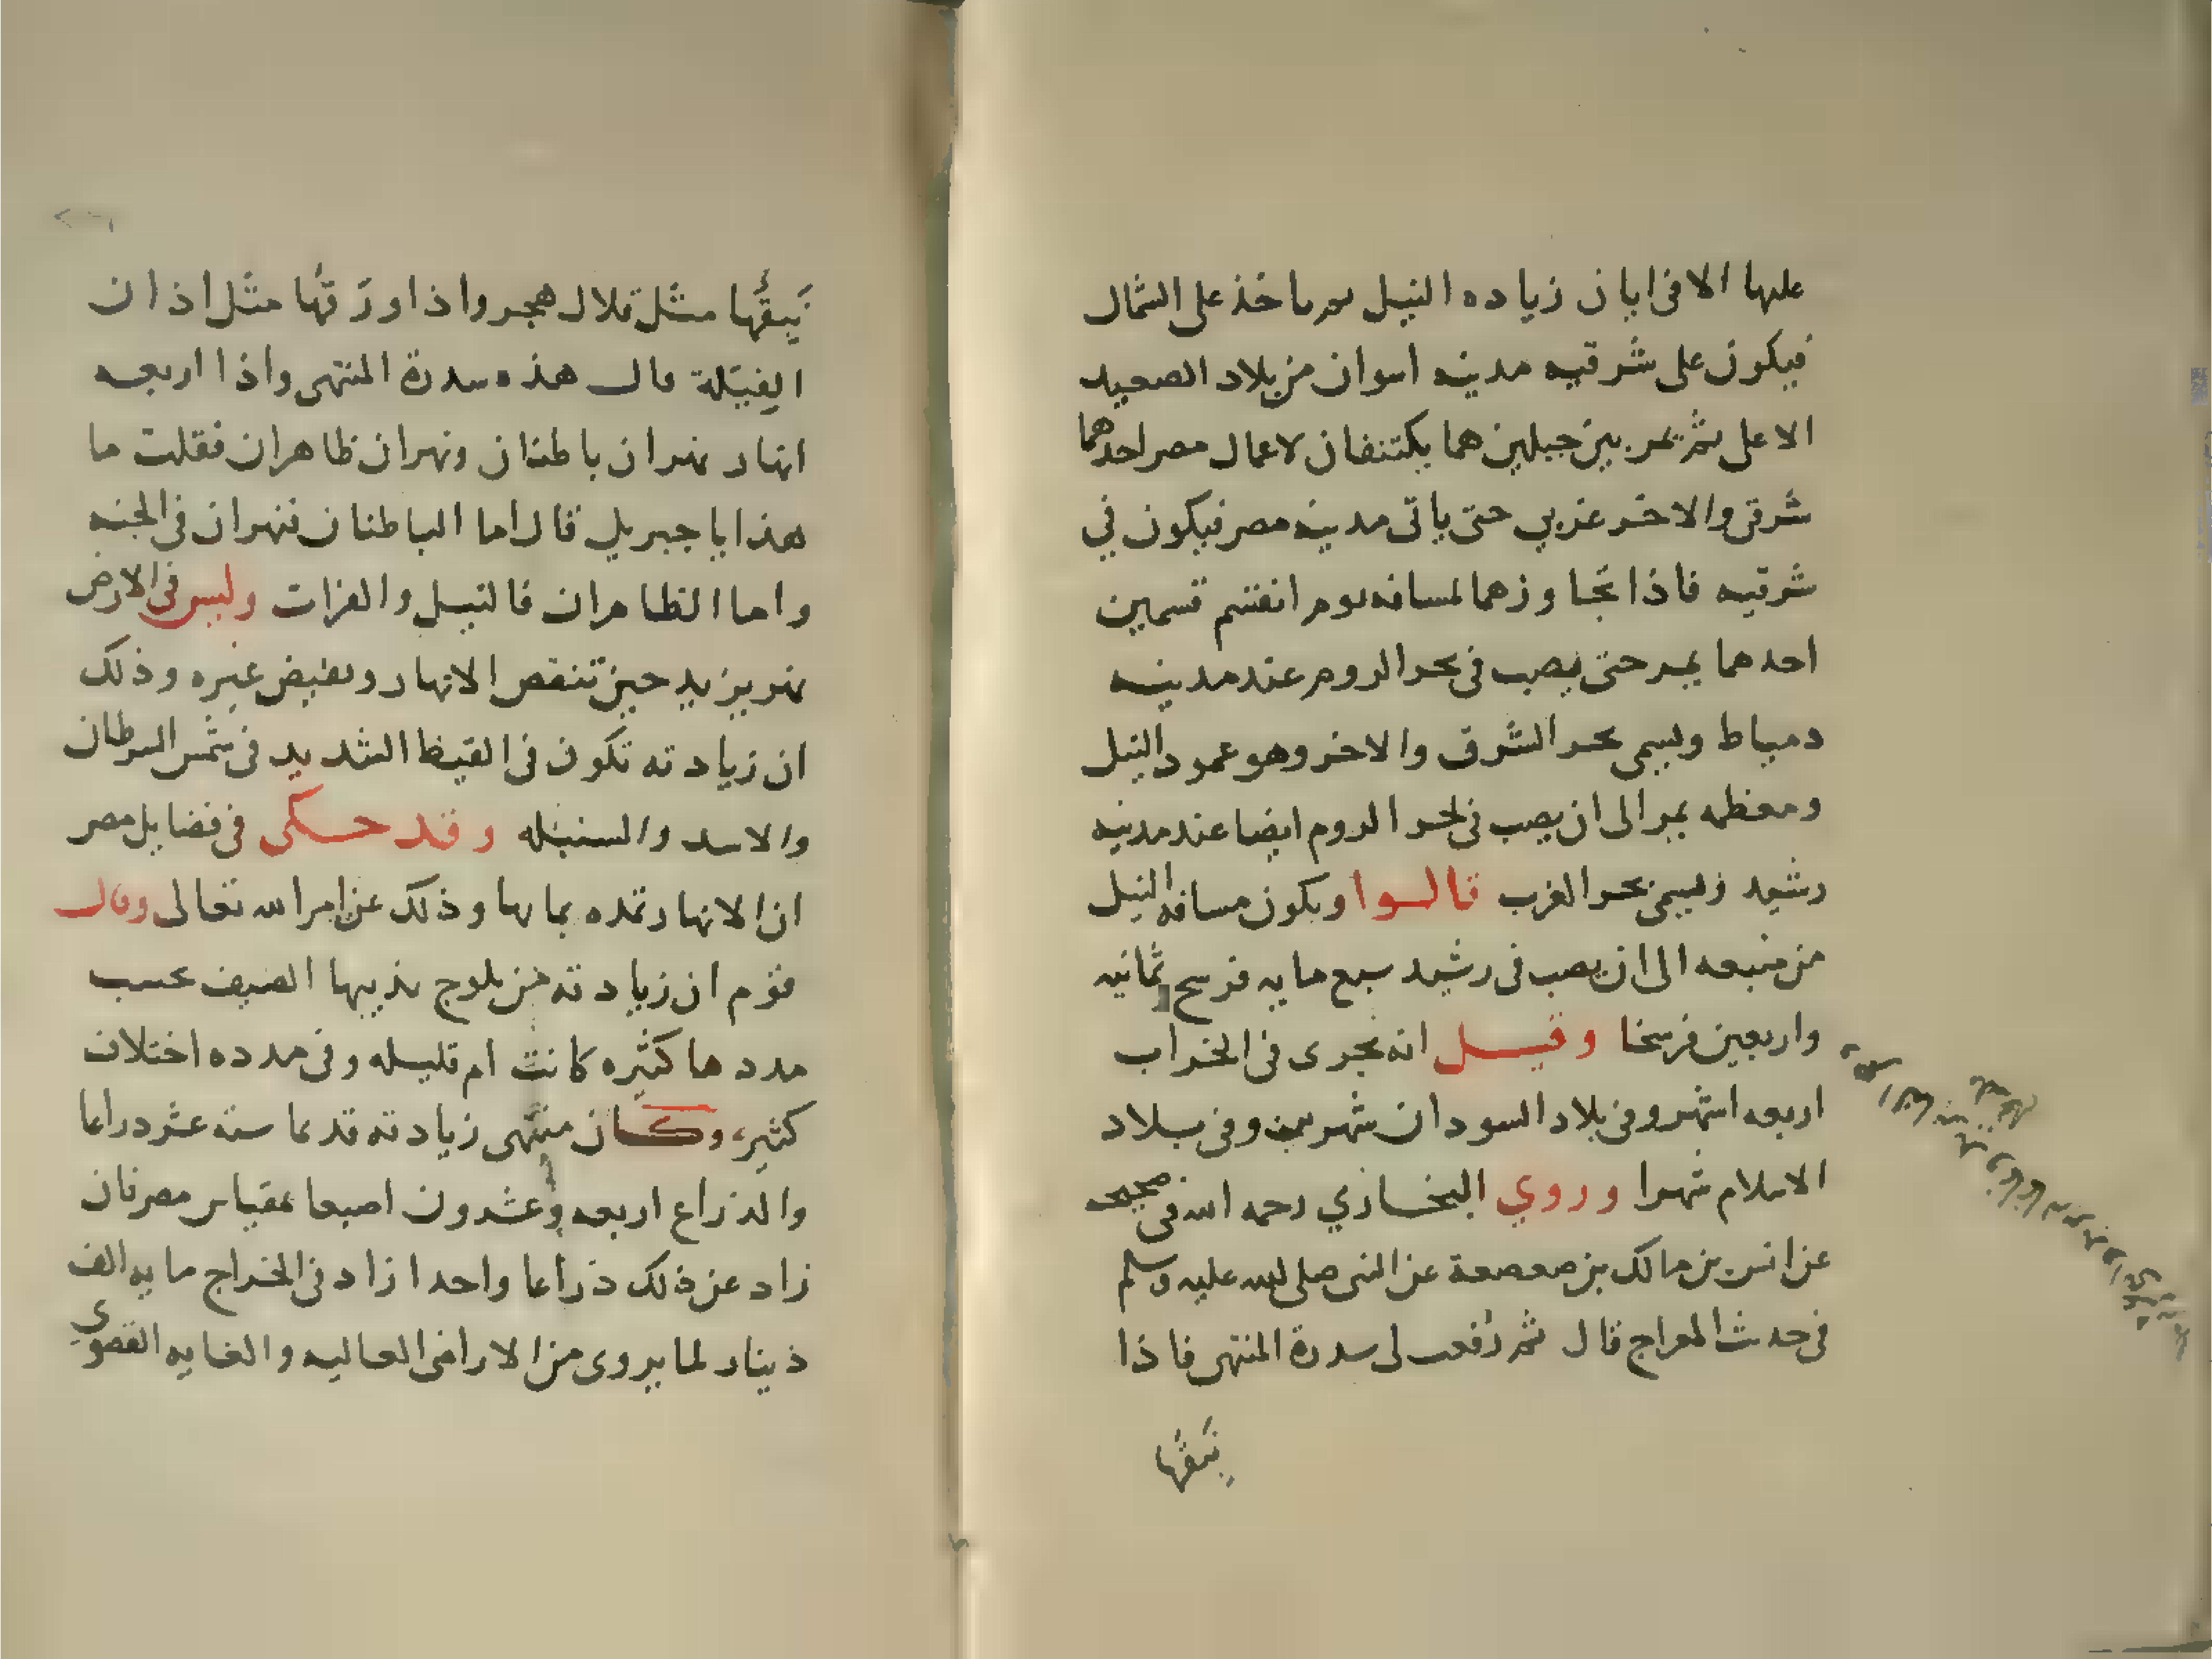 عليها الا فى ابان زياده النيل ثم ياخذ على الشمال
فيكون على شرقيه مدينه اسوان من بلاد الصعيد
الاعلى ثم يمر بين جبلين هما يكتنفان لاعمال مصر احدهما
شرقى والاخر غربي حتى ياتى مدينه مصر فيكون في
شرقيه فاذا تجاوزهما لمسافه يوم انقسم قسمين
احدهما يمر حتى يصب فى بحر الروم عند مدينه
دمياط ويسمى بحر الشرق والاخر وهو عمود النيل
ومعظمه يمر الى ان يصب فى بحر الروم ايضا عند مدينه
رشيد ويسمى بحر الغرب قالوا ويكون مسافه النيل
من منبعه الى ان يصب فى رشيد سبع مايه فرسخ ثمانيه
واربعين فرسخا وقيل انه يجرى فى الخراب
اربعه اشهر وفى بلاد السودان شهرين وفى بلاد
الاسلام شهرا وروي البخاري رحمه الله فى صحيحه
عن انس بن مالك بن صعصعة عن النبى صلى الله عليه وسلم
فى حدث المعراج قال ثم رُفعت لى سدرة المنتهى فاذا
نبقها
نَبِقُها مثل قلال هجر واذا ورَقُها مثل اذان
الفِيَلة قال هذه سدرة المنتهى واذا اربعه
انهار نهران باطنان ونهران ظاهران فقلت ما
هذا يا جبريل قال اما الباطنان فنهران فى الجنه
واما الظاهران فالنيل والفرات وليس فى الارض
نهر يزيد حين تنقص الانهار وتغيض غيره وذلك
ان زيادته تكون فى القيظ الشديد فى شمس السرطان
والاسد والسنبله وقد حكى فى فضايل مصر
ان الانهار تمده بمايها وذلك عن امر الله تعالى وقال
قوم ان زيادته من ثلوج يذيبها الصيف بحسب
مددها كثيره كانت ام قليله وفى مدده اختلاف
كثير، وكان منتهى زيادته قديما سته عشر دراعا
والذراع اربعه وعشرون اصبعا بمقياس مصر فان
زاد عن ذلك ذراعا واحدا زاد فى الخراج مايه الف
دينار لما يروى من الاراضى العاليه والغايه القصوى